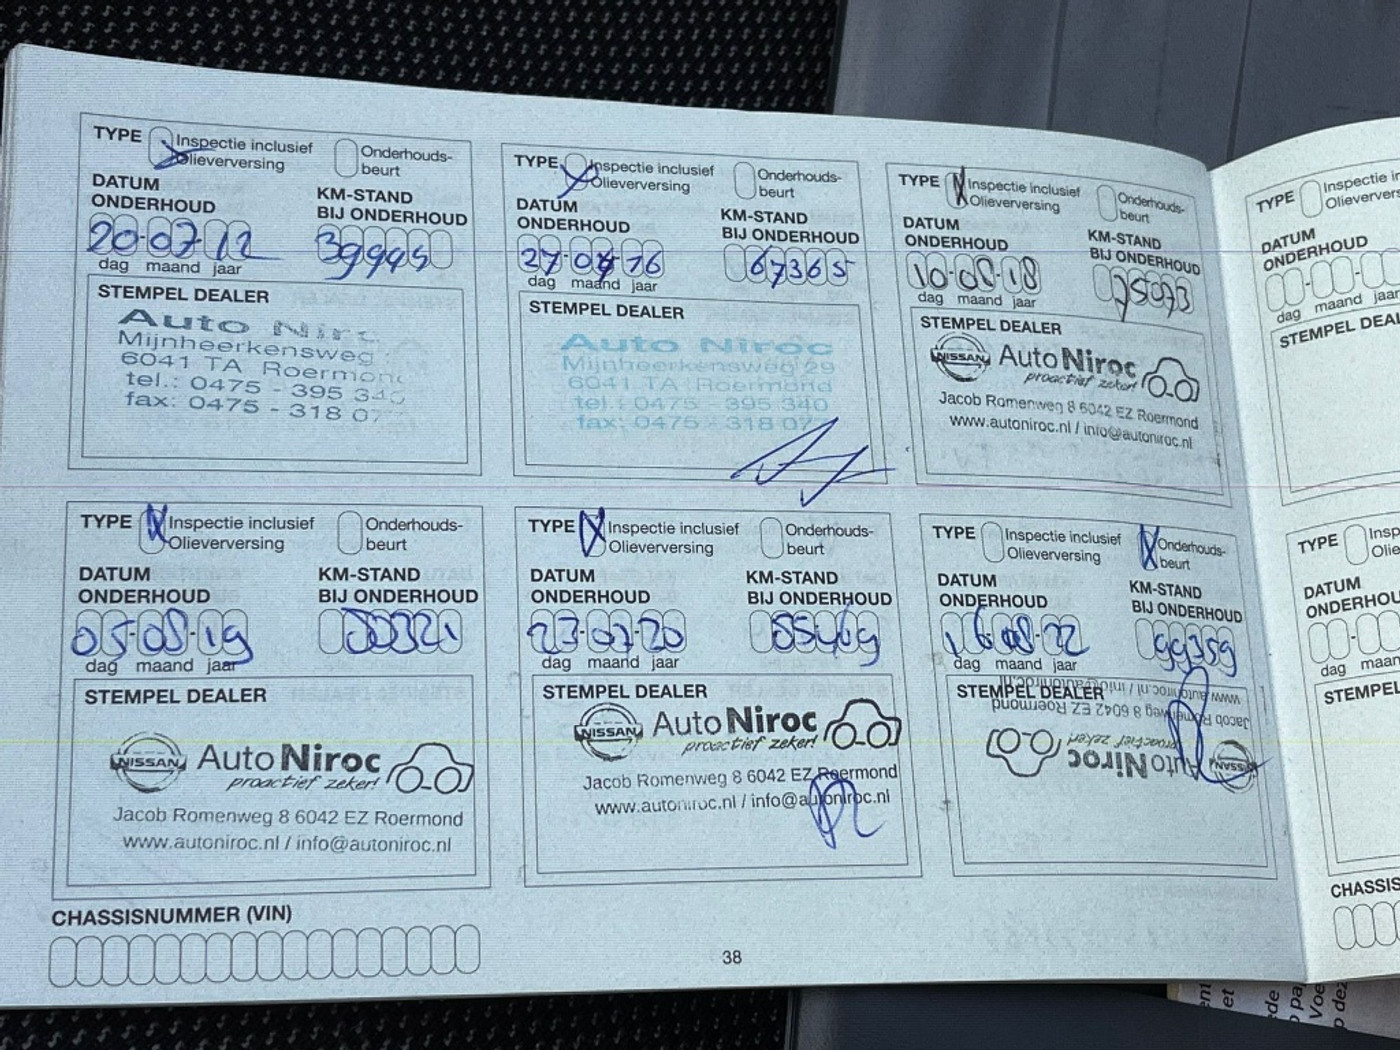 TYPE Inspectie inclusief Olieverversing Onderhouds-beurt
DATUM ONDERHOUD KM-STAND BIJ ONDERHOUD
20-07-12 39995
dag maand jaar
STEMPEL DEALER
Auto Niro
Mijnheerkensweg
6041 TA Roermond
tel.: 0475 - 395 340
fax: 0475 - 318 07
TYPE Inspectie inclusief Olieverversing Onderhouds-beurt
DATUM ONDERHOUD KM-STAND BIJ ONDERHOUD
27-07-16 67365
dag maand jaar
STEMPEL DEALER
Auto Niroc
Mijnheerkensweg 29
6041 TA Roermond
tel.: 0475 - 395 340
fax: 0475 - 318 077
TYPE Inspectie inclusief Olieverversing Onderhouds-beurt
DATUM ONDERHOUD KM-STAND BIJ ONDERHOUD
10-08-18 75073
dag maand jaar
STEMPEL DEALER
NISSAN Auto Niroc
proactief zeker!
Jacob Romenweg 8 6042 EZ Roermond
www.autoniroc.nl / info@autoniroc.nl
TYPE Inspectie inclusief Olieverversing Onderhouds-beurt
DATUM ONDERHOUD KM-STAND BIJ ONDERHOUD
05-08-19 80321
dag maand jaar
STEMPEL DEALER
NISSAN Auto Niroc
proactief zeker!
Jacob Romenweg 8 6042 EZ Roermond
www.autoniroc.nl / info@autoniroc.nl
TYPE Inspectie inclusief Olieverversing Onderhouds-beurt
DATUM ONDERHOUD KM-STAND BIJ ONDERHOUD
23-07-20 85469
dag maand jaar
STEMPEL DEALER
NISSAN Auto Niroc
proactief zeker!
Jacob Romenweg 8 6042 EZ Roermond
www.autoniroc.nl / info@autoniroc.nl
TYPE Inspectie inclusief Olieverversing Onderhouds-beurt
DATUM ONDERHOUD KM-STAND BIJ ONDERHOUD
16-08-22 99359
dag maand jaar
STEMPEL DEALER
www.autoniroc.nl / info@autoniroc.nl
Jacob Romenweg 8 6042 EZ Roermond
proactief zeker!
NISSAN Auto Niroc
CHASSISNUMMER (VIN)
38
TYPE Inspectie
Olieververs
DATUM
ONDERHOUD
dag maand jaar
STEMPEL DEAL
TYPE Insp
Olie
DATUM
ONDERHOU
dag maan
STEMPEL
CHASSIS